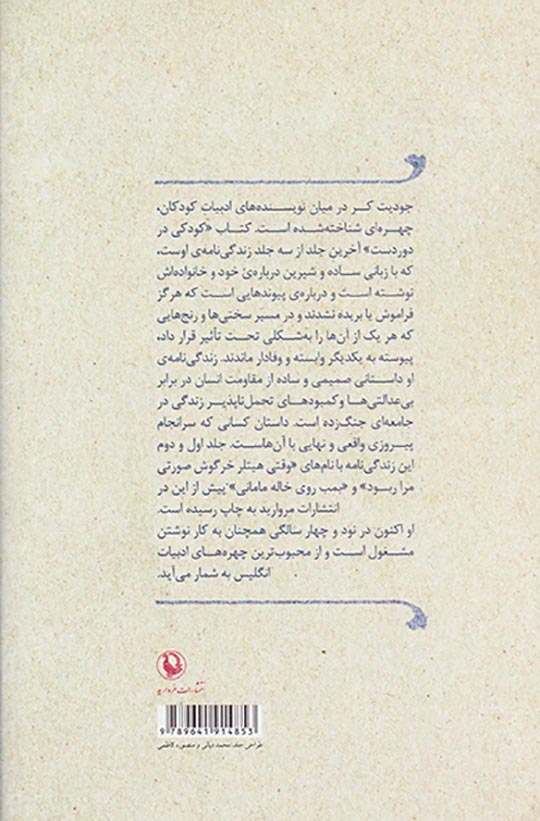 جودیت کر در میان نویسنده‌های ادبیات کودکان،
چهره‌ای شناخته‌شده است. کتاب «کودکی در
دوردست» آخرین جلد از سه جلد زندگی‌نامه‌ی اوست،
که با زبانی ساده و شیرین درباره‌ی خود و خانواده‌اش
نوشته است و درباره‌ی پیوندهایی است که هرگز
فراموش یا بریده نشدند و در مسیر سختی‌ها و رنج‌هایی
که هر یک از آن‌ها را به‌شکلی تحت تأثیر قرار داد،
پیوسته به یکدیگر وابسته و وفادار ماندند. زندگی‌نامه‌ی
او داستانی صمیمی و ساده از مقاومت انسان در برابر
بی‌عدالتی‌ها و کمبودهای تحمل‌ناپذیر زندگی در
جامعه‌ای جنگ‌زده است. داستان کسانی که سرانجام
پیروزی واقعی و نهایی با آن‌هاست. جلد اول و دوم
این زندگی‌نامه با نام‌های «وقتی هیتلر خرگوش صورتی
مرا ربود» و «بمب روی خاله مامانی» پیش از این در
انتشارات مروارید به چاپ رسیده است.
او اکنون در نود و چهار سالگی همچنان به کار نوشتن
مشغول است و از محبوب‌ترین چهره‌های ادبیات
انگلیس به شمار می‌آید.
انتشارات مروارید
9 789641 914853
طراحی جلد: محمد دیانی و منصوره کاظمی